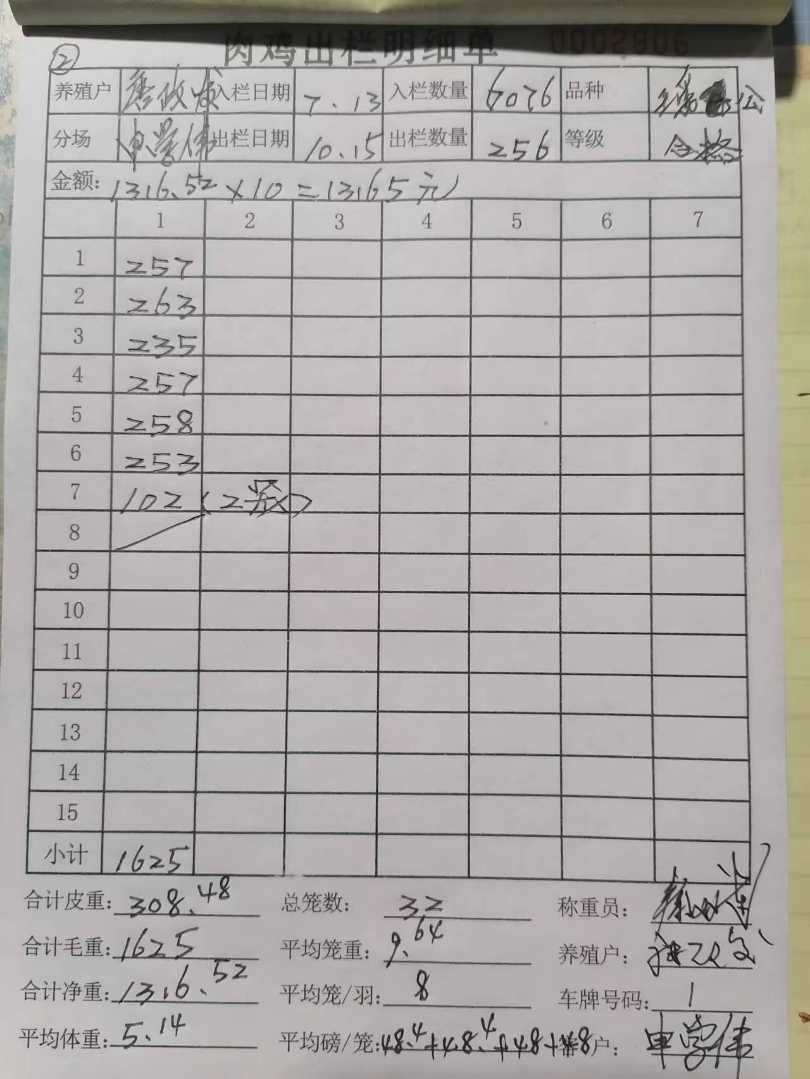 ②
肉鸡出栏明细单 0002906
养殖户 入栏日期 7.13 入栏数量 6076 品种 公
分场 申学伟 出栏日期 10.15 出栏数量 256 等级 合格
金额: 1316.52×10=13165元
1 2 3 4 5 6 7
1 257
2 263
3 235
4 257
5 258
6 253
7 102(2笼)
8
9
10
11
12
13
14
15
小计 1625
合计皮重: 308.48 总笼数: 32 称重员:
合计毛重: 1625 平均笼重: 9.64 养殖户:
合计净重: 1316.52 平均笼/羽: 8 车牌号码: 1
平均体重: 5.14 平均磅/笼: 48.4+48.4+48+48 户: 申学伟